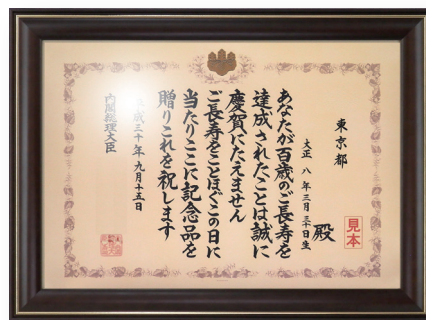 東京都
大正八年三月三十日生
殿
あなたが百歳のご長寿を
達成されたことは誠に
慶賀にたえません
ご長寿をことほぐこの日に
当たりここに記念品を
贈りこれを祝します
平成三十年九月十五日
内閣総理大臣
見本